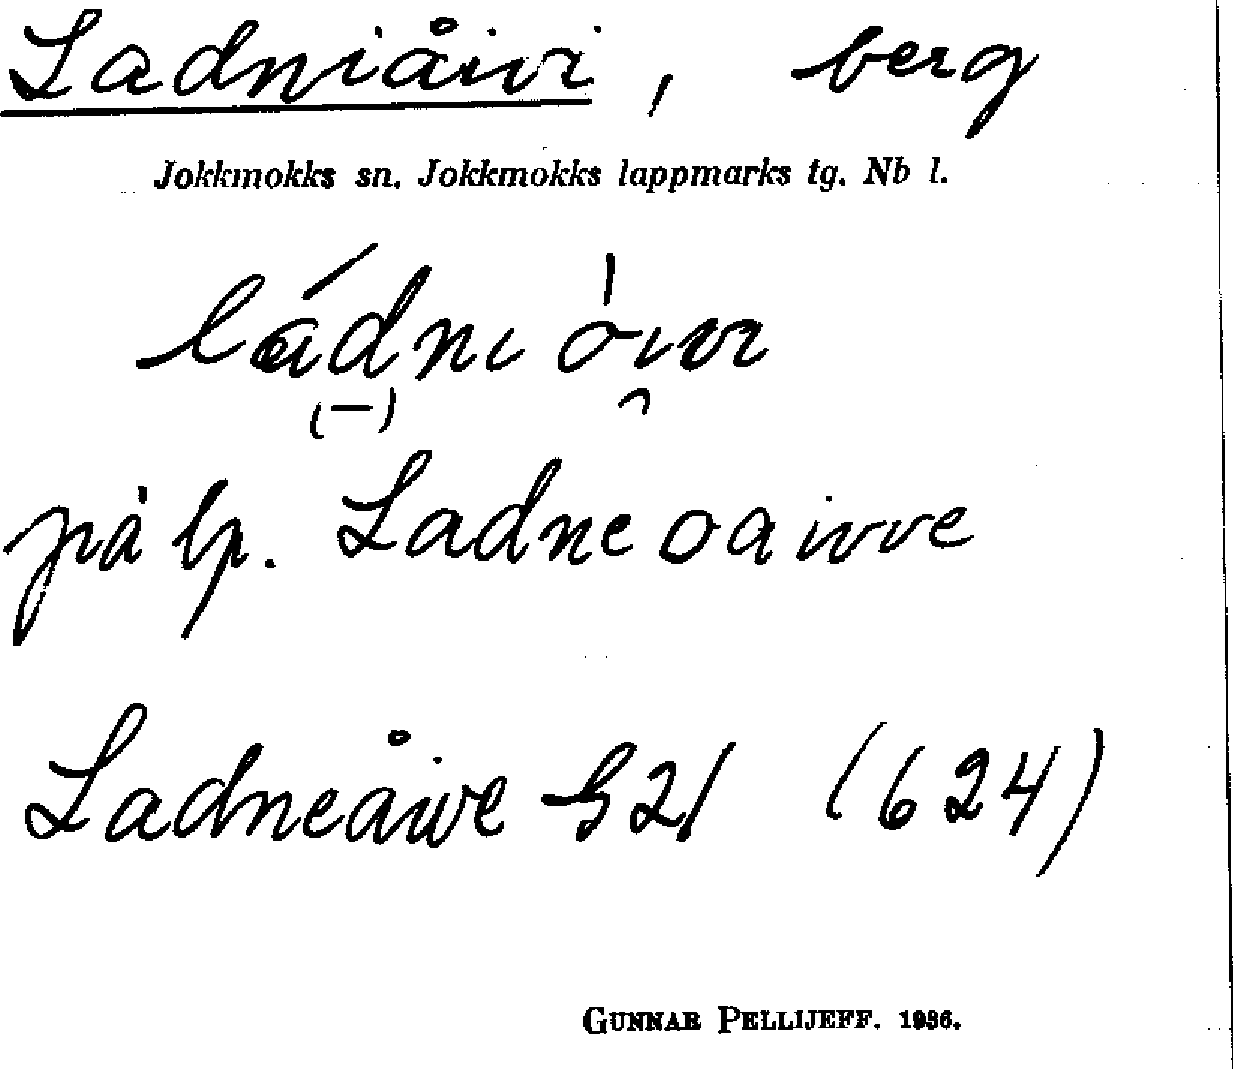 Ladniåivi, berg
Jokkmokks sn. Jokkmokks lappmarks tg. Nb l.
ládni òivi
(–)
på lp. Ladne oaivve
Ladneåive S21 (624)
GUNNAR PELLIJEFF. 1936.